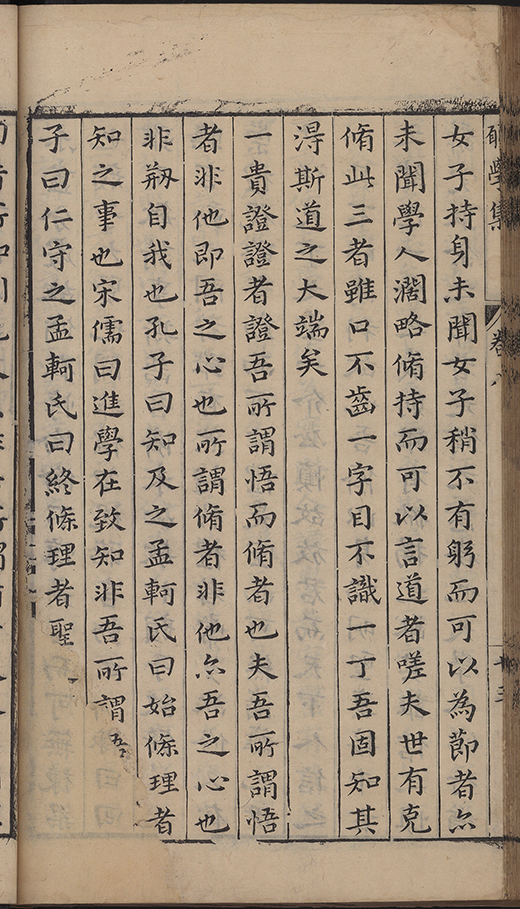 女子持身未聞女子稍不有躬而可以為節者亦
未聞學人濶略脩持而可以言道者嗟夫世有克
脩此三者雖口不齒一字目不識一丁吾固知其
淂斯道之大端矣
一貴證證者證吾所謂悟而脩者也夫吾所謂悟
者非他即吾之心也所謂脩者非他亦吾之心也
非剏自我也孔子曰知及之孟軻氏曰始條理者
知之事也宋儒曰進學在致知非吾所謂
子曰仁守之孟軻氏曰終條理者聖
學集
卷八
十三